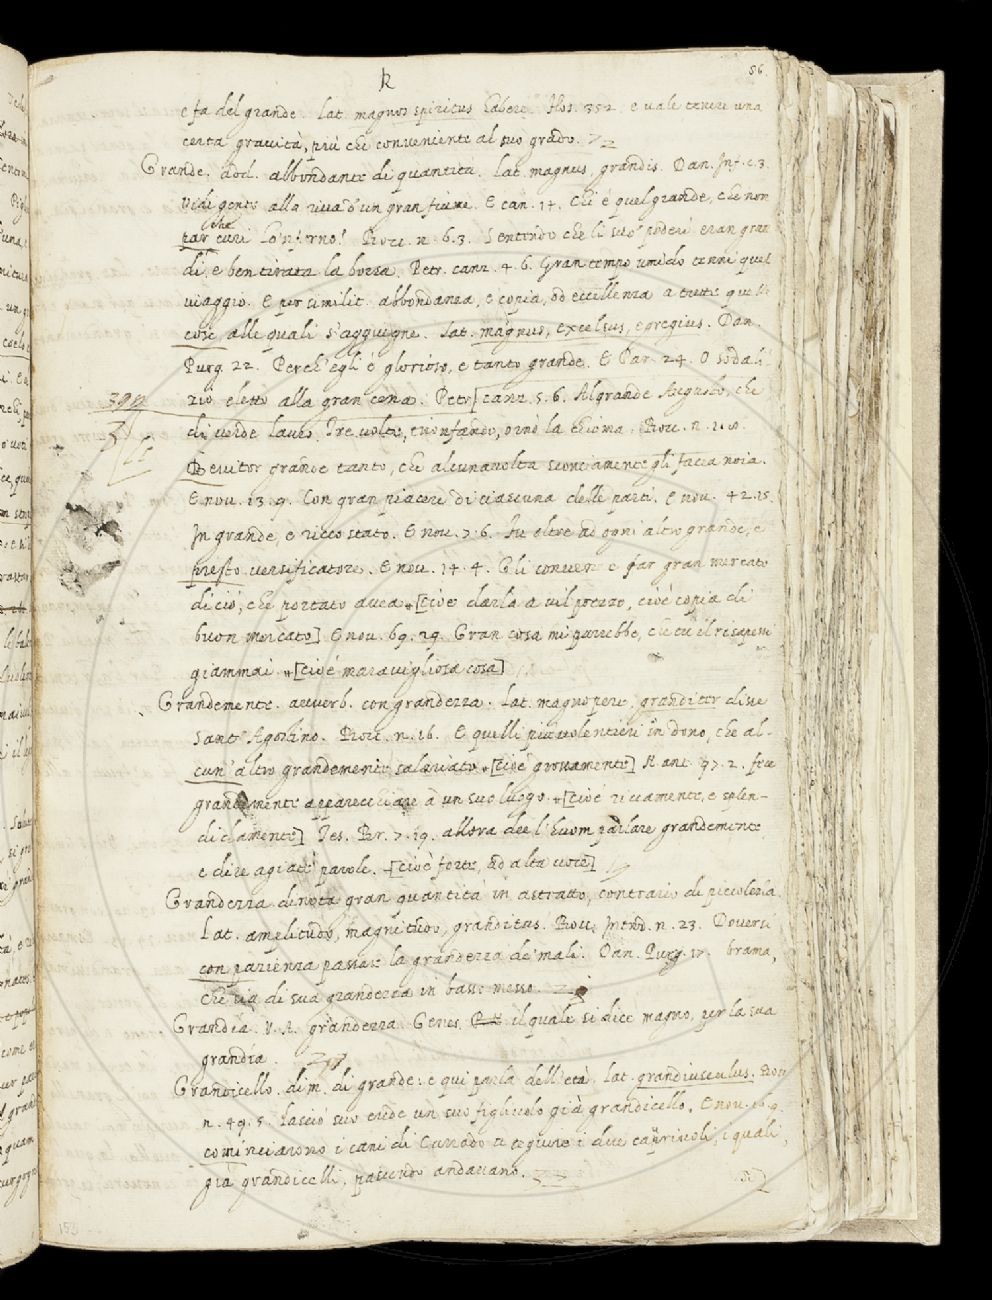 56
k
e fa del grande. Lat. magnos spiritus habere. Hos. 352. e vale tenere una
certa gravità, più che conveniente al suo grado.
Grande. add. abbondante di quantità. Lat. magnus, grandis. Dan. Inf. c. 3.
Vidi gente alla riva d'un gran fiume. E can. 14. Chi è quel grande, che non
par che curi Lo'ncerno? Bocc. n. 6. 3. Sentendo che li suo' poderi eran gran
di, e ben tirata la borsa. Petr. canz. 4. 6. Gran tempo umido tenni quel
viaggio. E per similit. abbondanza, e copia, od eccellenza a tutte quelle
cose, alle quali s'aggiugne. Lat. magnus, excelsus, egregius. Dan.
Purg. 22. Perch'egli è glorioso, e tanto grande. E Par. 24. O sodali
zio eletto alla gran cena. Petr. canz. 5. 6. Al grande Augusto, che
di verde lauro. Tre volte, trionfando, ornò la chioma. Bocc. n.
E nov. 13. 9. Con gran piacere di ciascuna delle parti. E nov. 42. 15.
In grande, e ricco stato. E nov. 7. 6. Fu oltre ad ogni altro grande, e
presto versificatore. E nov. 14. 4. Gli convenne far gran mercato
di ciò, che portato avea [cioè darla a vil prezzo, cioè copia di
buon mercato] E nov. 69. 29. Gran cosa mi parrebbe, che tu il risapessi
giammai [cioè maravigliosa cosa]
Grandemente. avverb. con grandezza. Lat. magnopere, granditer disse
Sant' Agostino. Bocc. n. 16. E quelli più volentieri in dono, che al-
cun' altro grandemente salariato [cioè grossamente] N. ant. 97. 2. fece
grandemente apparecchiare a un suo luogo [cioè riccamente, e splen-
didamente] Tes. Br. 7. 19. allora dee l'huom parlare grandemente
e dire agiate parole. [cioè forte, ad alta voce]
Grandezza dinota gran quantità in astratto, contrario di piccolezza.
Lat. amplitudo, magnitudo, granditas. Bocc. Introd. n. 23. Doversi
con pazienza passare la grandezza de' mali. Dan. Purg. 17. brama,
che sia di sua grandezza in basso messo.
Grandia. V. A. grandezza. Genes. il quale si dice magno, per la sua
grandia.
Grandicello. dim. di grande: e qui parla dell'età. Lat. grandiusculus. Bocc
n. 49. 5. Lasciò suo erede un suo figliuolo già grandicello. E nov. 16. 9.
cominciarono i cani di Currado a seguire i due cavrivoli, i quali
già grandicelli, pascendo andavano.
153